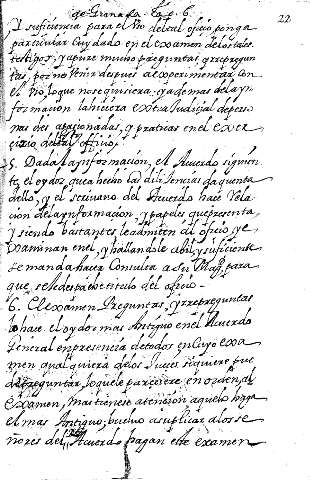 de Granada. Lo. 9. 6.
22
Y suficiencia para el vso del tal oficio ponga
particular cuydado en el examen de los tales
testigos, y apure mucho preguntas y repregun
tas, por no venir despues a experimentar con
el vso, lo que no se quisiera: y ademas de la yn
formacion la hiciera extra Judicial de perso
nas des apasionadas, y praticas en el exer
cicio del tal oficio.
5. Dada la ynformacion, el Acuerdo siguien
te, el oydor que a hecho las diligencias da quenta
dello, y el scrivano del Acuerdo hace rela
cion de la ynformacion, y papeles que presenta,
y siendo bastantes le admiten al oficio, y e
xaminan en el, y hallandole abil, y suficiente
se manda hacer Consulta a Su Magd. para
que, se le despache titulo del oficio.
6. El examen Preguntas, y rrepreguntas
lo hace el oydor mas Antiguo en el Acuerdo
General en presencia de todos, en cuyo exa
men qualquiera de los Jueces siguiere pue
de preguntar, lo que le pareciere en orden, al
examen, mas tienese atencion a que lo haga
el mas Antiguo, buelvo a suplicar a los se
ñores del Acuerdo hagan este examen